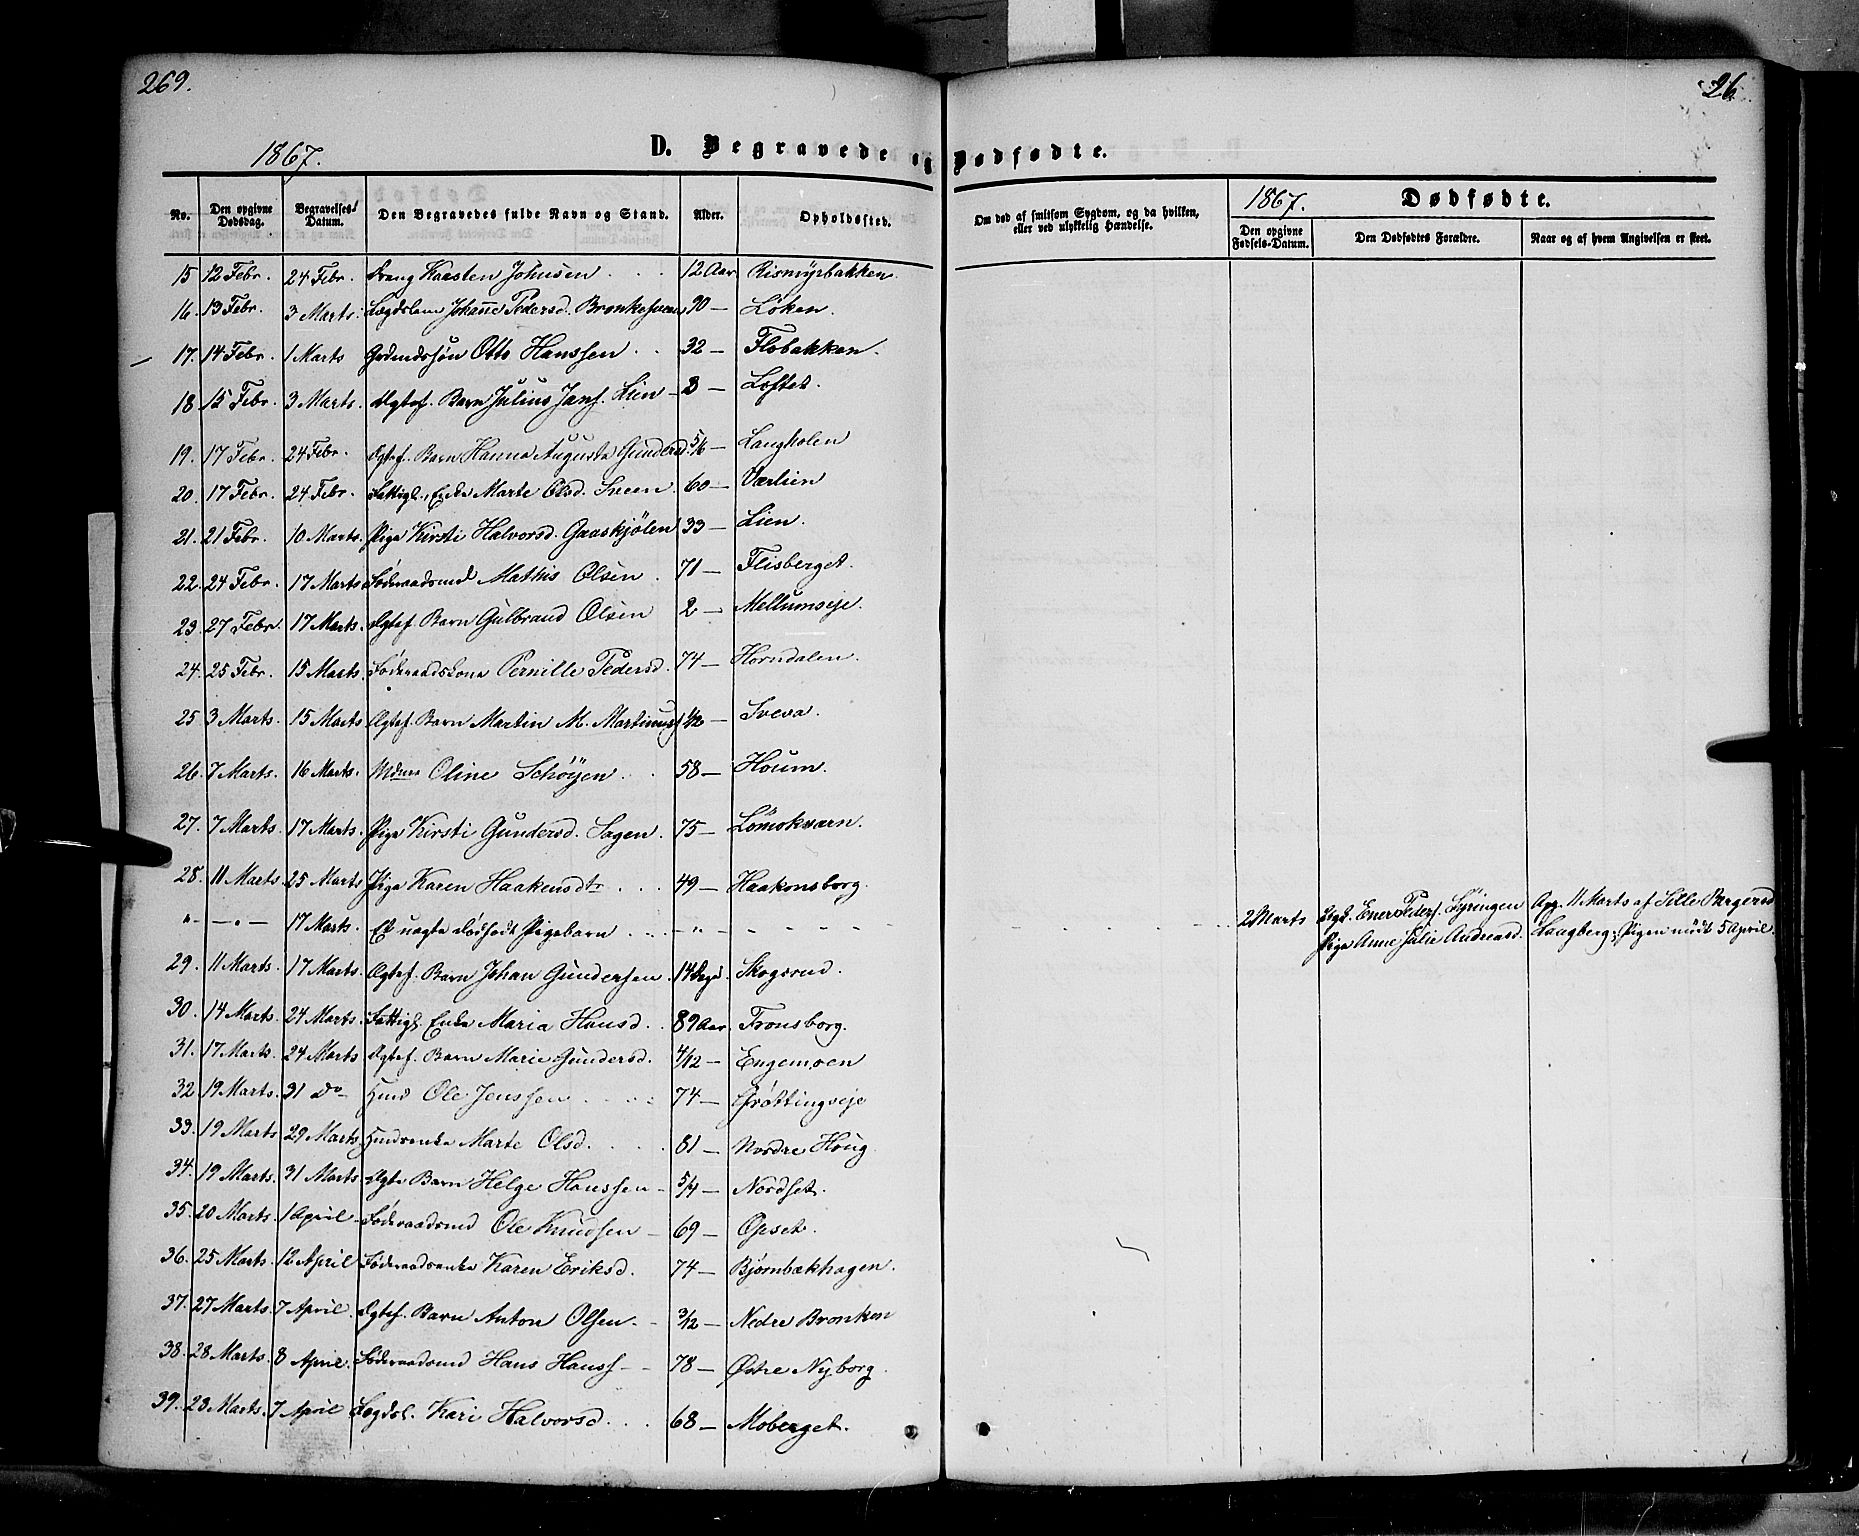 269.
26
1867.
D. Begravede og Dødfødte.
No. Den opgivne Dødsdag. Begravelses-Datum. Den Begravedes fulde Navn og Stand. Alder. Opholdssted. Om død af smitsom Sygdom, og da hvilken, eller ved ulykkelig Hændelse. 1867. Dødfødte.
Den opgivne Fødsels-Datum. Den Dødfødtes Forældre. Naar og af hvem Angivelsen er skeet.
15 12 Febr. 24 Febr. Dreng Karsten Johnsen 12 Aar Rismyrbakken.
16. 13 Febr. 3 Marts. Lægdslem Johanne Pedersd. Bronkesveen 90 — Löken.
17. 14 Febr. 1 Marts Grdmdssøn Otto Hanssen 32 — Flobakken.
18 15 Febr. 3 Marts. Ægtef. Barn Julius Jans. Lien — 3 — Loftet.
19. 17 Febr. 24 Febr. Ægtef. Barn Hanna Augusta Gundersd. 5/6 — Langholen
20. 17 Febr. 24 Febr. Fattigl., Enke Marte Olsd. Sveen. 60 — Værlien
21. 21 Febr. 10 Marts. Pige Kirsti Halvorsd. Gaaskjölen 33 — Lien.
22. 24 Febr. 17 Marts Föderaadsmd Mathis Olsen 71 — Flisberget.
23. 27 Febr. 17 Marts. Ægtef. Barn Gulbrand Olsen 2 — Mellumseje.
24. 25 Febr. 15 Marts. Föderaadskone Pernille Pedersd. 74 — Horndalen.
25 3 Marts. 15 Marts Ægtef. Barn Martin M. Martinus. 1/12 — Sveva.
26. 7 Marts. 16 Marts. Mdme Oline Schöyen 58 — Houm.
27. 7 Marts. 17 Marts. Pige Kirsti Gundersd. Sagen. 75 — Lömokværn.
28. 11 Marts. 25 Marts Pige Karen Haakensdtr 49 — Haakonsborg.
„ — „ — 17 Marts. Et uægte dødfødt Pigebarn — „ — 2 Marts Ugk. Ener Peders. Syringen Ang. 11 Marts af Sille Bergersd
Pige Anne Julie Andreasd. Langberg; Pigen mödt 5 April.
29. 11 Marts. 17 Marts. Ægtef. Barn Johan Gundersen. 14 Dage. Skogsrud.
30. 14 Marts. 24 Marts. Fattigl. Enke Maria Hansd. 89 Aar. Fronsborg.
31. 17 Marts. 24 Marts Ægtef. Barn Marie Gundersd. 4/12 — Engemoen
32 19 Marts. 31 Do — Hmd Ole Jenssen 74 — Grøttingseje
33. 19 Marts 29 Marts. Hmdsenke Marte Olsd. 81 — Nordre Houg.
34. 19 Marts. 31 Marts. Ægte Barn Helge Hanssen — 5/4 — Nordset.
35. 20 Marts. 1 April. Föderaadsmd Ole Knudsen — 69 — Opset.
36. 25 Marts. 12 April Föderaadsenke Karen Eriksd. 74 — Bjørnbækhagen.
37. 27 Marts. 7 April. Ægtef. Barn Anton Olsen. 3/12 — Nedre Bronken
38. 28 Marts. 8 April. Föderaadsmd Hans Hanss. — 78 — Østre Nyborg.
39. 28 Marts. 7 April Lægdsl. Kari Halvorsd. 68 — Moberget.